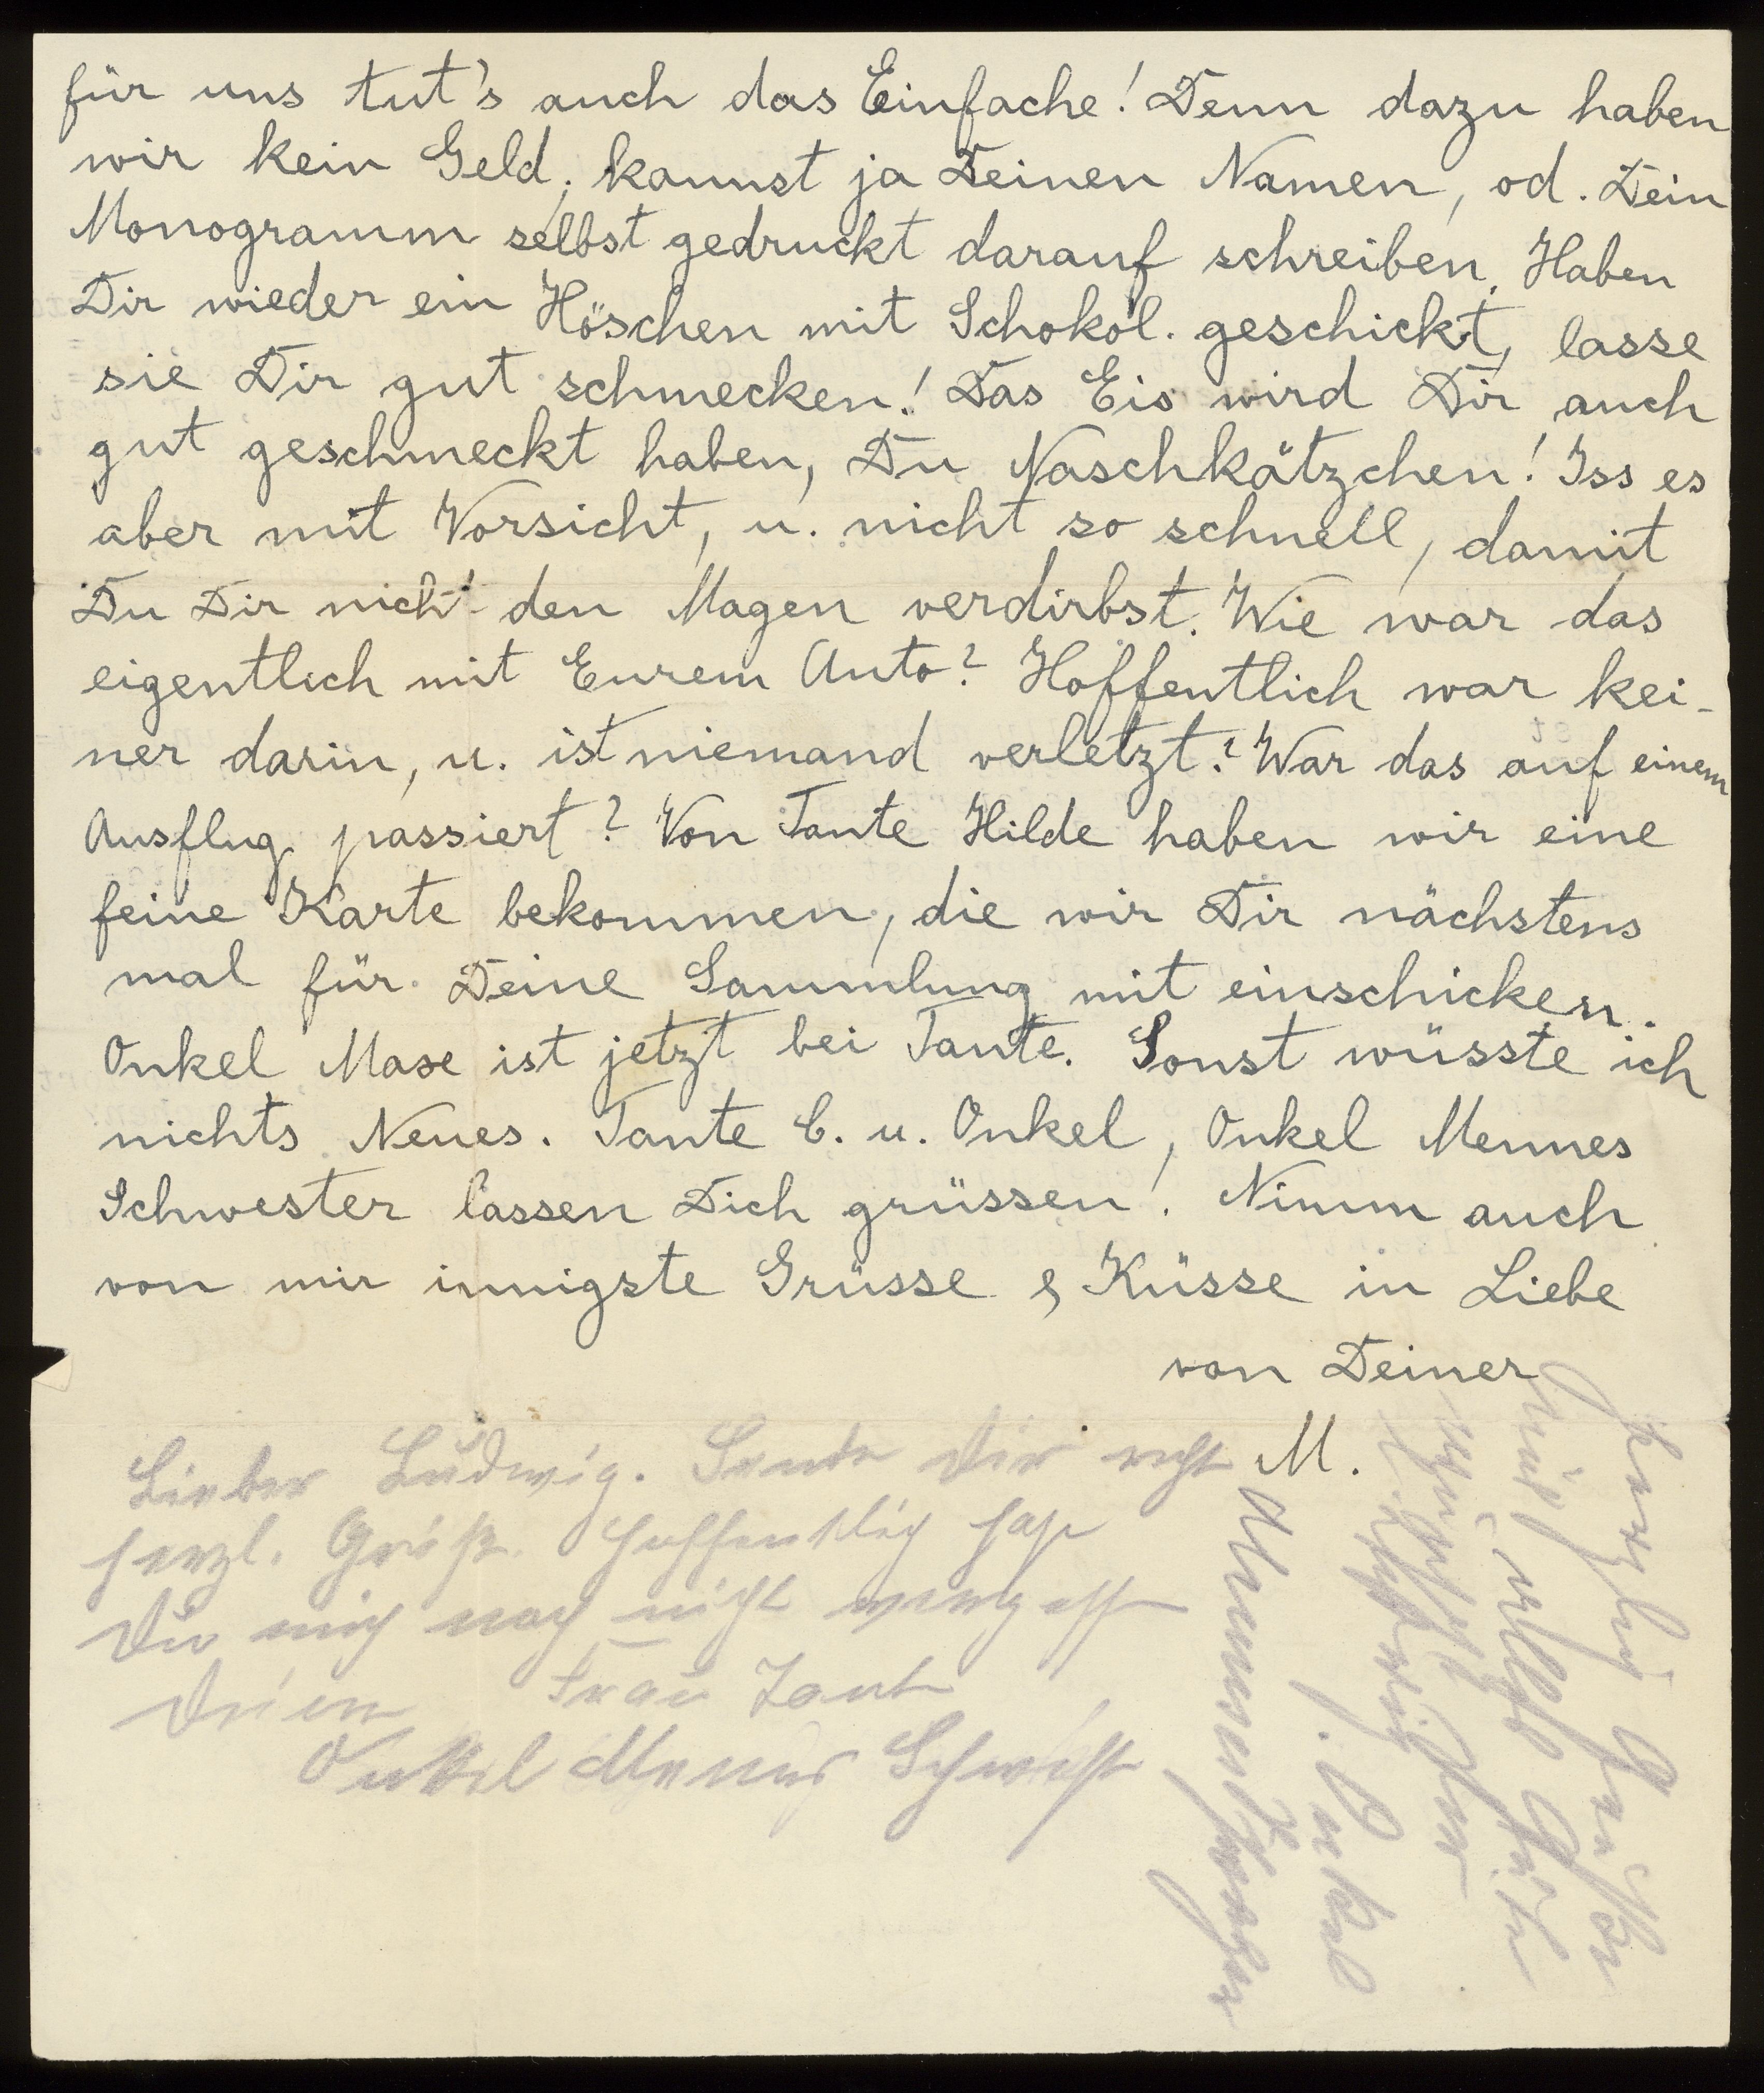 für uns tut's auch das Einfache! Denn dazu haben
wir kein Geld, kannst ja Deinen Namen, od. Dein
Monogramm selbst gedruckt darauf schreiben. Haben
Dir wieder ein Höschen mit Schokol. geschickt, lasse
sie Dir gut schmecken! Das Eis wird Dir auch
gut geschmeckt haben, Du Naschkätzchen! Iss es
aber mit Vorsicht, u. nicht so schnell, damit
Du Dir nicht den Magen verdirbst. Wie war das
eigentlich mit Eurem Auto? Hoffentlich war kei-
ner darin, u. ist niemand verletzt? War das auf einem
Ausflug passiert? Von Tante Hilde haben wir eine
feine Karte bekommen, die wir Dir nächstens
mal für Deine Sammlung mit einschicken.
Onkel Max ist jetzt bei Tante. Sonst wüsste ich
nichts Neues. Tante C. u. Onkel, Onkel Mennes
Schwester lassen Dich grüssen! Nimm auch
von mir innigste Grüsse & Küsse in Liebe
von Deiner
M.
Lieber Ludwig. Sende Dir recht
herzl. Grüße. Hoffentlich hast
Du mich noch nicht vergessen
Deine Frau Tante
Onkel Mennes Schwester
Herzliche Grüße
und alles Gute
J. Onkel